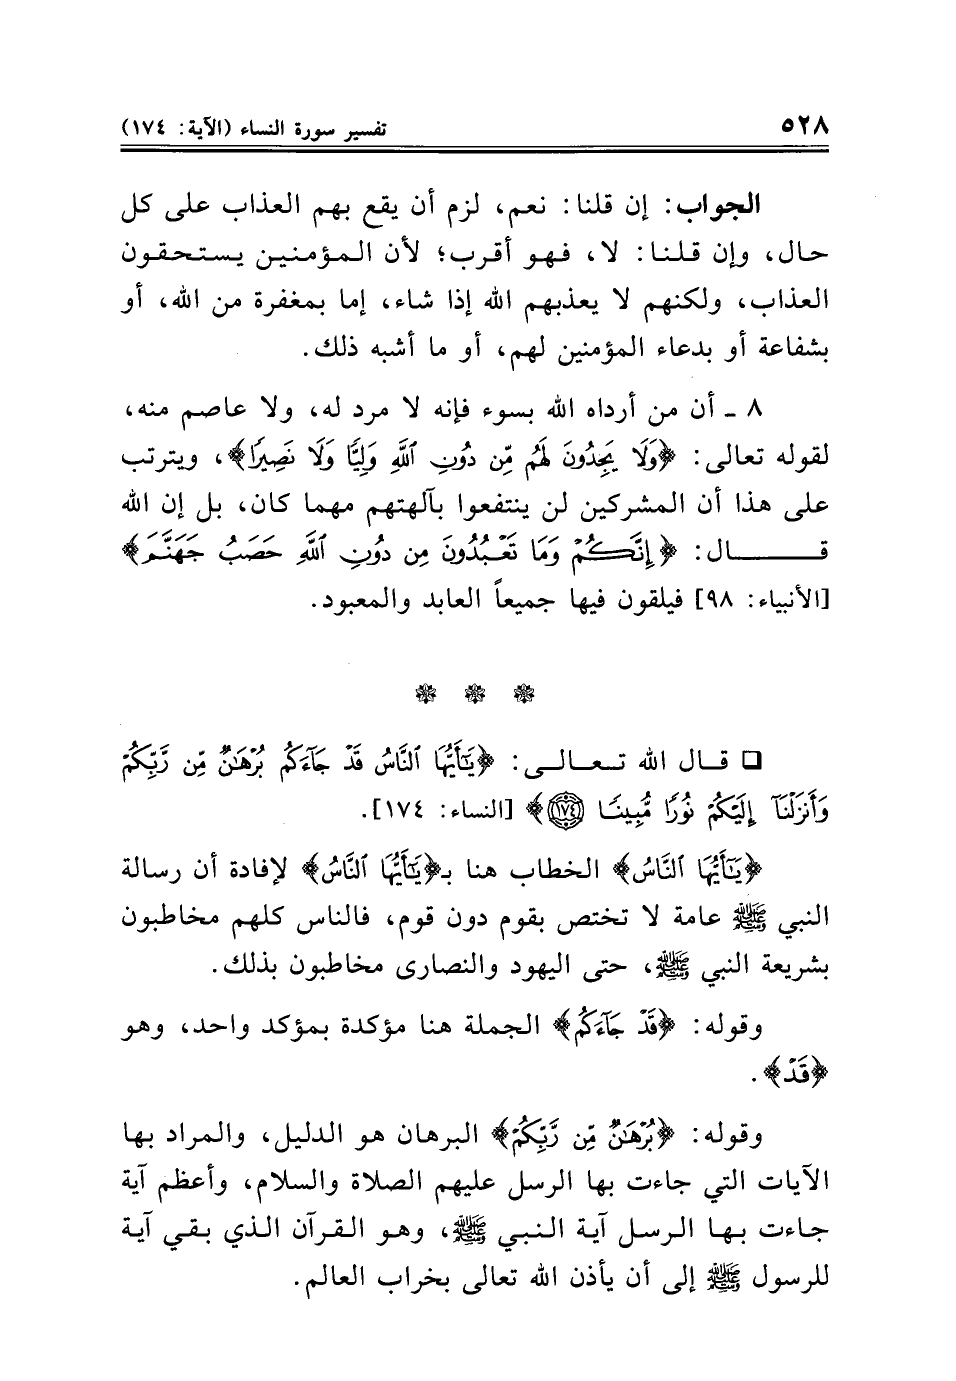 ٥٢٨ تفسير سورة النساء (الآية: ١٧٤)
الجواب: إن قلنا: نعم، لزم أن يقع بهم العذاب على كل
حال، وإن قلنا: لا، فهو أقرب؛ لأن المؤمنين يستحقون
العذاب، ولكنهم لا يعذبهم الله إذا شاء، إما بمغفرة من الله، أو
بشفاعة أو بدعاء المؤمنين لهم، أو ما أشبه ذلك.
٨ ـ أن من أرداه الله بسوء فإنه لا مرد له، ولا عاصم منه،
لقوله تعالى: ﴿وَلَا يَجِدُونَ لَهُم مِّن دُونِ ٱللَّهِ وَلِيًّا وَلَا نَصِيرًا﴾، ويترتب
على هذا أن المشركين لن ينتفعوا بآلهتهم مهما كان، بل إن الله
قال: ﴿إِنَّكُمْ وَمَا تَعْبُدُونَ مِن دُونِ ٱللَّهِ حَصَبُ جَهَنَّمَ﴾
[الأنبياء: ٩٨] فيلقون فيها جميعاً العابد والمعبود.
❁ ❁ ❁
❏ قال الله تعالى: ﴿يَٰٓأَيُّهَا ٱلنَّاسُ قَدْ جَآءَكُم بُرْهَٰنٌ مِّن رَّبِّكُمْ
وَأَنزَلْنَآ إِلَيْكُمْ نُورًا مُّبِينًا ۝١٧٤﴾ [النساء: ١٧٤].
﴿يَٰٓأَيُّهَا ٱلنَّاسُ﴾ الخطاب هنا بـ﴿يَٰٓأَيُّهَا ٱلنَّاسُ﴾ لإفادة أن رسالة
النبي ﷺ عامة لا تختص بقوم دون قوم، فالناس كلهم مخاطبون
بشريعة النبي ﷺ، حتى اليهود والنصارى مخاطبون بذلك.
وقوله: ﴿قَدْ جَآءَكُم﴾ الجملة هنا مؤكدة بمؤكد واحد، وهو
﴿قَدْ﴾.
وقوله: ﴿بُرْهَٰنٌ مِّن رَّبِّكُمْ﴾ البرهان هو الدليل، والمراد بها
الآيات التي جاءت بها الرسل عليهم الصلاة والسلام، وأعظم آية
جاءت بها الرسل آية النبي ﷺ، وهو القرآن الذي بقي آية
للرسول ﷺ إلى أن يأذن الله تعالى بخراب العالم.